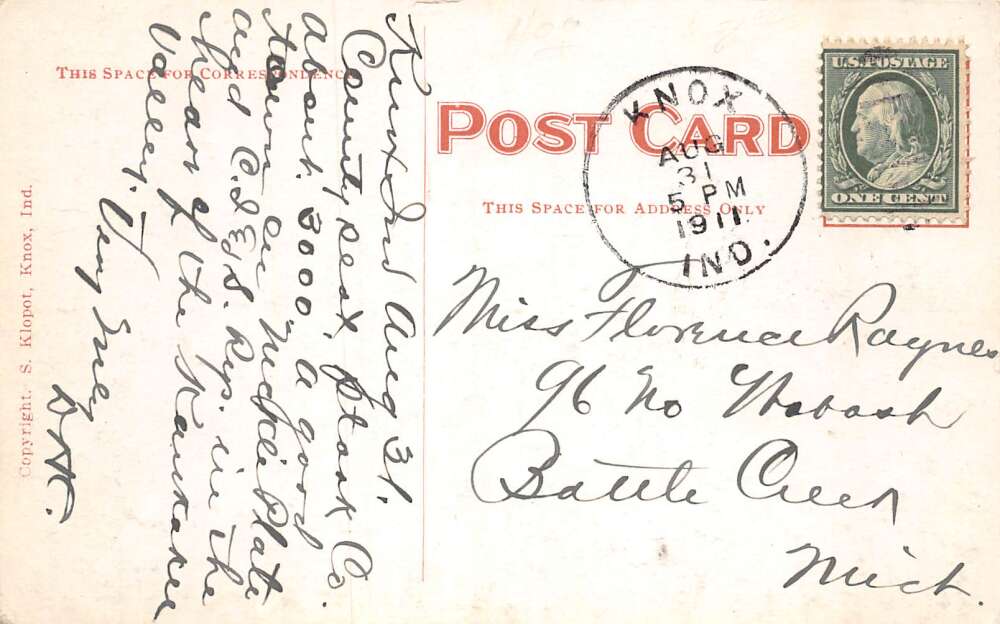 THIS SPACE FOR CORRESPONDENCE
POST CARD
THIS SPACE FOR ADDRESS ONLY
KNOX
AUG
31
5 PM
1911
IND.
U.S. POSTAGE
ONE CENT
Knox Ind Aug 31.
County seat, Stark Co.
about 3000, a good
town on Nickel Plate
and C.I.&S. Rys. in the
heart of the Kankakee
Valley. Very Truly
Miss Florence Raynes
96 No Wabash
Battle Creek
Mich.
Copyright. S. Klopot, Knox, Ind.